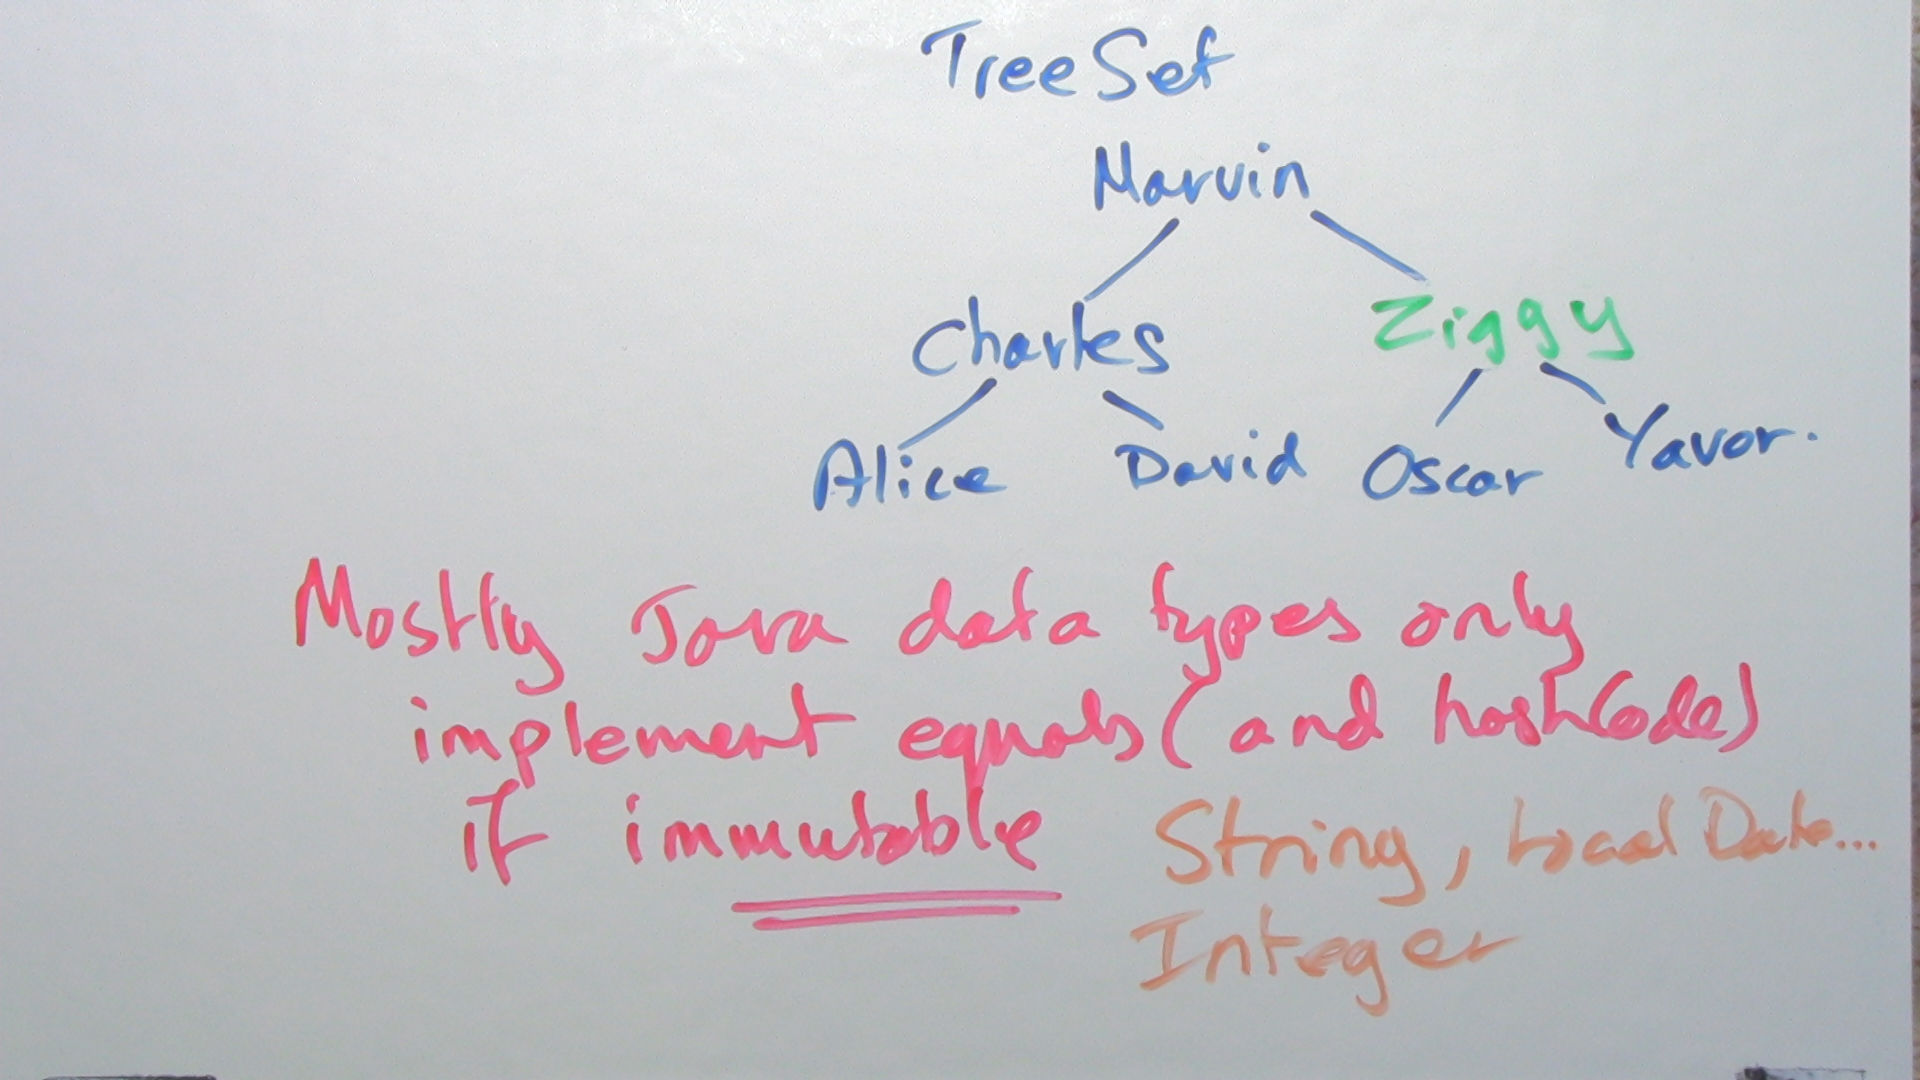 TreeSet
Marvin
Charles Ziggy
Alice David Oscar Yavor.
Mostly Java data types only
implement equals (and hashCode)
if immutable String, Local Date...
Integer